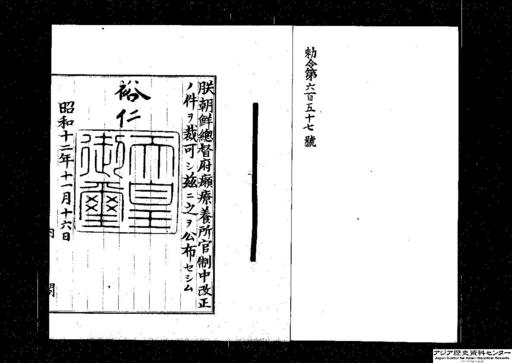 勅令第六百五十七號
朕朝鮮總督府癩療養所官制中改正
ノ件ヲ裁可シ茲ニ之ヲ公布セシム
裕仁
天皇御璽
昭和十二年十一月十六日
内閣
アジア歴史資料センター
Japan Center for Asian Historical Records